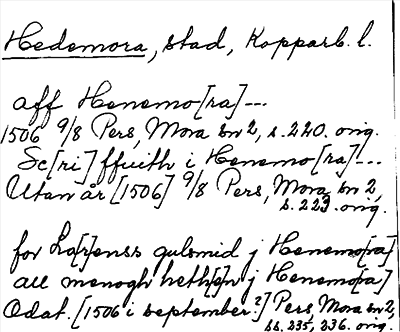 Hedemora, stad, Kopparb. l.
aff Henemo[ra] ---
1506 9/8 Pers, Mora bn 2, s. 220. orig.
Sc[ri]ffuith i Henemo[ra] ---
Utan år [1506] 9/8 Pers, Mora bn 2,
s. 223. orig.
for La[r]enss gulsmid j Henemo[ra]
all menogh heth[e]n j Henemo[ra]
Odat. [1506 i september?] Pers, Mora bn 2,
ss. 235, 236. orig.